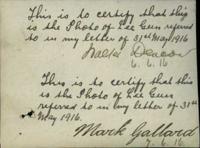 This is to certify that this
is the Photo of Lee Gun referred
to in my letter of 31st May 1916
Walter Deacon
6.6.16
This is to certify that this
is the Photo of Lee Gun
referred to in my letter of 31st
May 1916.
Mark Gallard
7.6.16